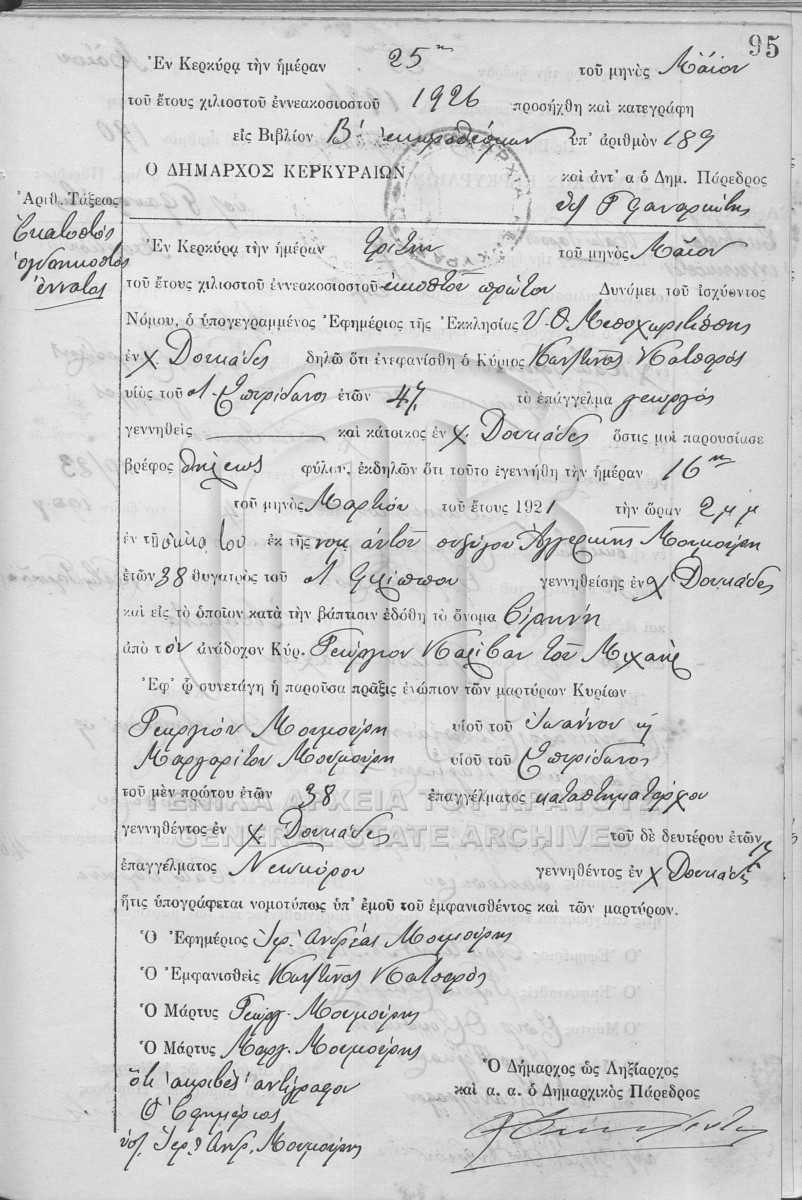 95
Ἐν Κερκύρᾳ τὴν ἡμέραν 25ην τοῦ μηνὸς Μαΐου
τοῦ ἔτους χιλιοστοῦ ἐννεακοσιοστοῦ 1926 προσήχθη καὶ κατεγράφη
εἰς Βιβλίον Β' ἐκπροθέσμων ὑπ' ἀριθμὸν 189
Ὁ ΔΗΜΑΡΧΟΣ ΚΕΡΚΥΡΑΙΩΝ
καὶ ἀντ' α ὁ Δημ. Πάρεδρος
Ἀριθ. Τάξεως
Ἑκατοστὸς
ὀγδοηκοστὸς
ἔννατος
Ἐν Κερκύρᾳ τὴν ἡμέραν τρίτην τοῦ μηνὸς Μαΐου
τοῦ ἔτους χιλιοστοῦ ἐννεακοσιοστοῦ εἰκοστοῦ πρώτου Δυνάμει τοῦ ἰσχύοντος
Νόμου, ὁ ὑπογεγραμμένος Ἐφημέριος τῆς Ἐκκλησίας Υ. Θ. Μεσοχωριτίσσης
ἐν χ. Δουκάδες δηλῶ ὅτι ἐνεφανίσθη ὁ Κύριος Κωνστῖνος Κατσαρὸς
υἱὸς τοῦ Σπυρίδωνος ἐτῶν 47 τὸ ἐπάγγελμα γεωργὸς
γεννηθεὶς καὶ κάτοικος ἐν χ. Δουκάδες ὅστις μοὶ παρουσίασε
βρέφος θήλεως φύλου, ἐκδηλῶν ὅτι τοῦτο ἐγεννήθη τὴν ἡμέραν 16ην
τοῦ μηνὸς Μαρτίου τοῦ ἔτους 1921 τὴν ὥραν 2 μ μ
ἐν τῇ οἰκίᾳ του ἐκ τῆς νομ. αὐτοῦ συζύγου Ἀγγερικῆς Μουμούρη
ἐτῶν 38 θυγατρὸς τοῦ Φιλίππου γεννηθείσης ἐν χ Δουκάδες
καὶ εἰς τὸ ὁποῖον κατὰ τὴν βάπτισιν ἐδόθη τὸ ὄνομα Εἰρήνη
ἀπὸ τὸν ἀνάδοχον Κύρ. Γεώργιον τοῦ Μιχαὴλ
Ἐφ' ᾧ συνετάγη ἡ παροῦσα πρᾶξις ἐνώπιον τῶν μαρτύρων Κυρίων
Γεωργίου Μουμούρη υἱοῦ τοῦ Ἰωάννου κ
Μαργαρίτου Μουμούρη υἱοῦ τοῦ Σπυρίδωνος
τοῦ μὲν πρώτου ἐτῶν 38 ἐπαγγέλματος καταστηματάρχου
γεννηθέντος ἐν χ Δουκάδες τοῦ δὲ δευτέρου ἐτῶν
ἐπαγγέλματος Νεωκόρου γεννηθέντος ἐν χ Δουκάδες
ἥτις ὑπογράφεται νομοτύπως ὑπ' ἐμοῦ τοῦ ἐμφανισθέντος καὶ τῶν μαρτύρων.
Ὁ Ἐφημέριος Ἱερ. Ἀνδρέας Μουμούρης
Ὁ Ἐμφανισθεὶς Κωνστῖνος Κατσαρὸς
Ὁ Μάρτυς Γεώργ. Μουμούρης
Ὁ Μάρτυς Μαργ. Μουμούρης
ὅτι ἀκριβὲς ἀντίγραφον
Ὁ Ἐφημέριος
ὑπ. Ἱερ. Ἀνδρ. Μουμούρης
Ὁ Δήμαρχος ὡς Ληξίαρχος
καὶ α. α. ὁ Δημαρχικὸς Πάρεδρος
ΓΕΝΙΚΑ ΑΡΧΕΙΑ ΤΟΥ ΚΡΑΤΟΥΣ
GENERAL STATE ARCHIVES